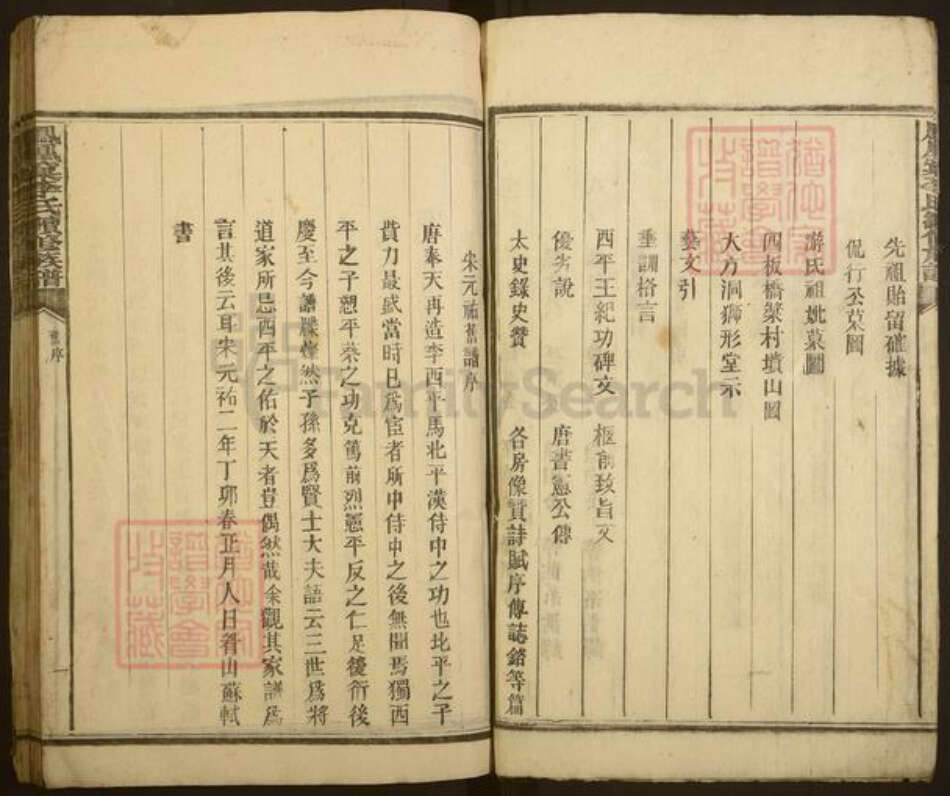 先祖貽留確據
侃行公墓圖
游氏祖妣墓圖
四板橋棠村墳山圖
大方洞獅形堂示
藝文引
垂訓格言
西平王紀功碑文 柩前致旨文
優劣說 唐書憲公傳
太史錄史贊 各房像贊詩賦序傳誌銘等篇
宋元祐舊譜序
唐奉天再造李西平馬北平漢侍中之功也北平之子
貲力最盛當時已爲宦者所中侍中之後無聞焉獨西
平之子愬平蔡之功克篤前烈憲平反之仁足後衍後
慶至今譜牒燦然子孫多爲賢士大夫語云三世爲將
道家所忌西平之佑於天者豈偶然哉余觀其家譜爲
言其後云耳宋元祐二年丁卯春正月人日眷山蘇軾
書
鳳凰寨李氏續修族譜
舊序
一
FamilySearch
譜學會
收藏